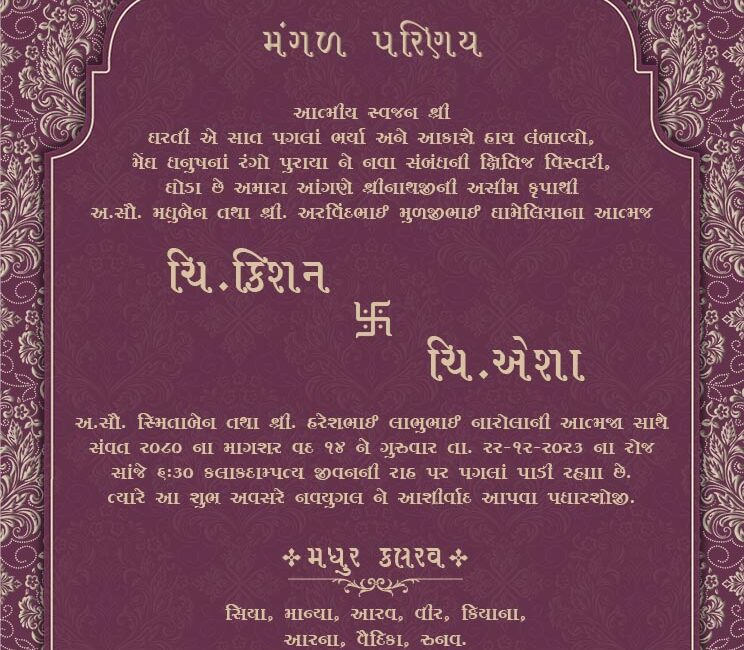 મંગળ પરિણય
આત્મીય સ્વજન શ્રી
ધરતી એ સાત પગલાં ભર્યા અને આકાશે હાથ લંબાવ્યો,
મેઘ ધનુષનાં રંગો પુરાયા ને નવા સંબંધની ક્ષિતિજ વિસ્તરી,
ઘોડા છે અમારા આંગણે શ્રીનાથજીની અસીમ કૃપાથી
અ.સૌ. મધુબેન તથા શ્રી. અરવિંદભાઈ મુળજીભાઈ ધામેલિયાના આત્મજ
ચિ.કિશન
卐
ચિ.એશા
અ.સૌ. સ્મિતાબેન તથા શ્રી. હરેશભાઈ લાભુભાઈ નારોલાની આત્મજા સાથે
સંવત ૨૦૮૦ ના માગશર વદ ૧૪ ને ગુરુવાર તા. ૨૨-૧૨-૨૦૨૩ ના રોજ
સાંજે ૬:૩૦ કલાકદામ્પત્ય જીવનની રાહ પર પગલાં પાડી રહ્યાા છે.
ત્યારે આ શુભ અવસરે નવયુગલ ને આશીર્વાદ આપવા પધારશોજી.
મધુર કલરવ
સિયા, માન્યા, આરવ, વીર, કિયાના,
આરના, વૈદિકા, રુનવ.